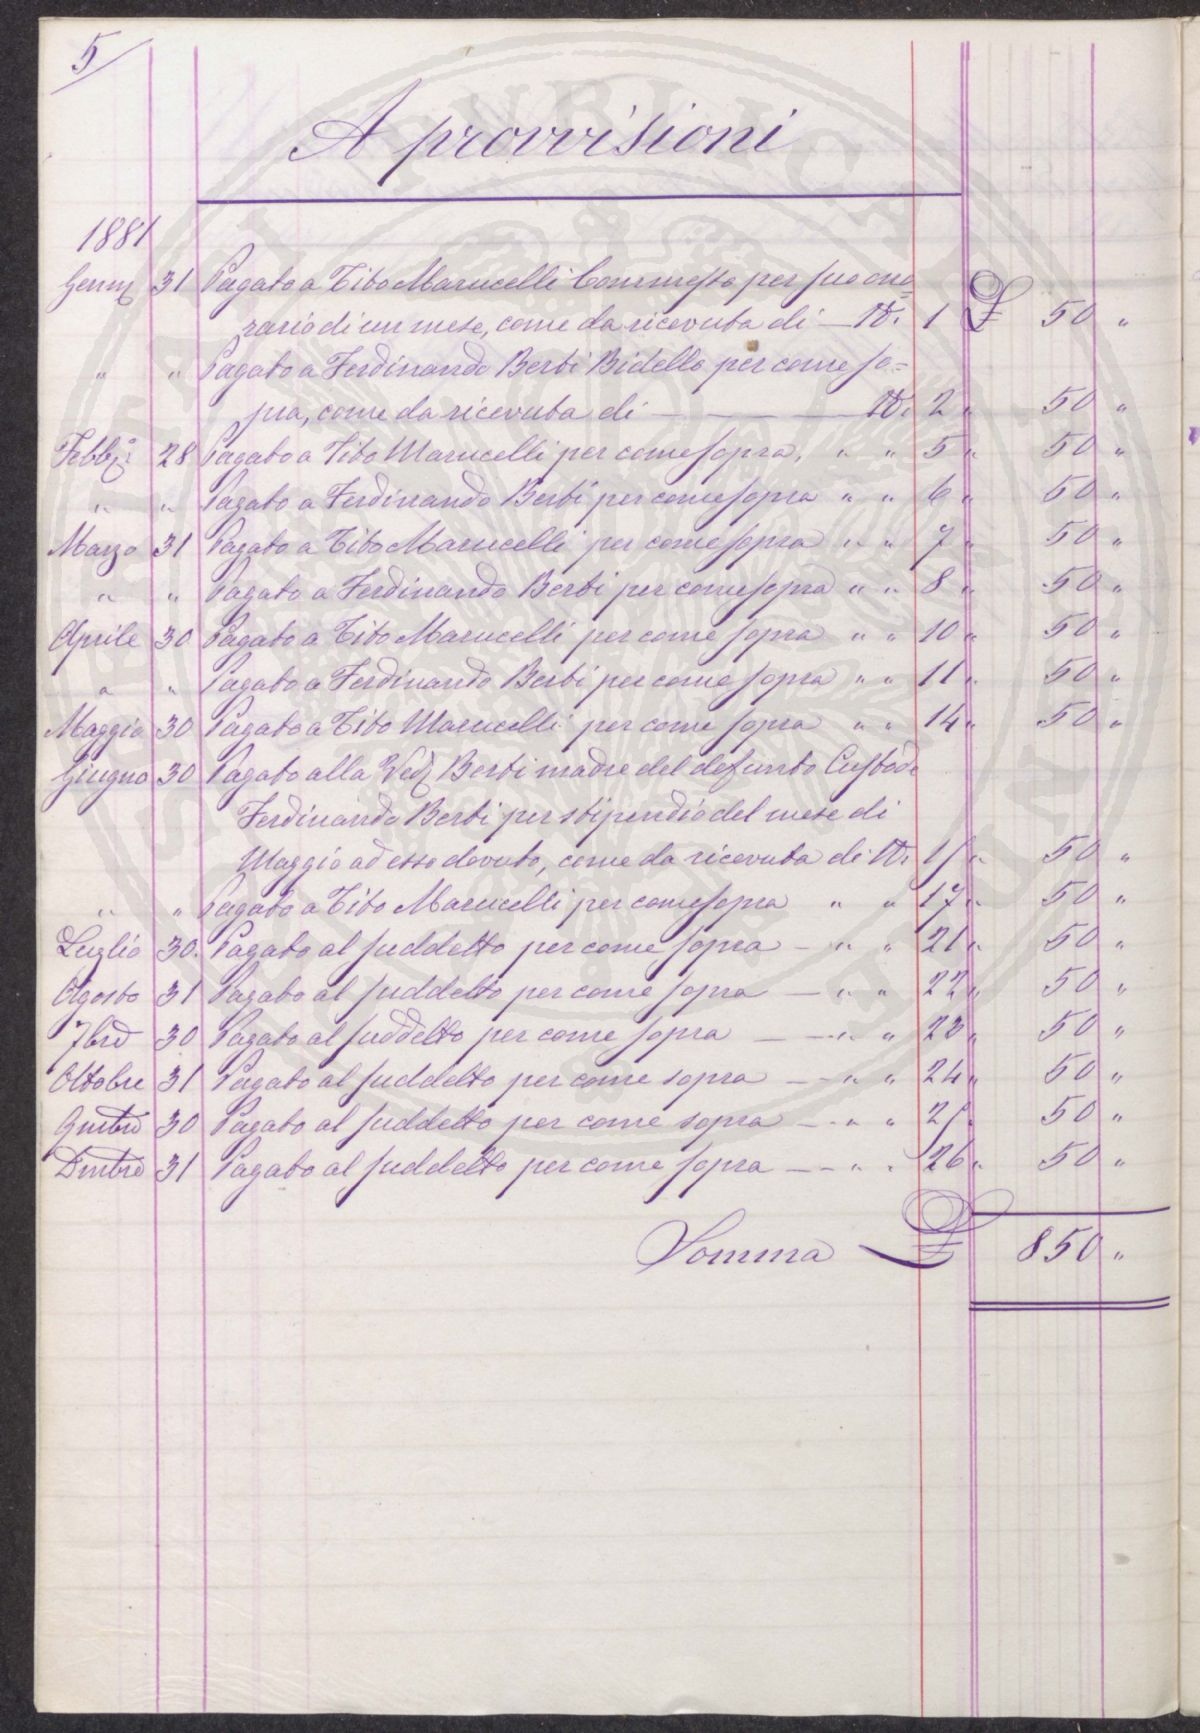 5
A provvisioni
1881
Genn 31 Pagato a Tito Marucelli Commesso per suo ono=
rario di un mese, come da ricevuta di — N. 1 £ 50 "
" " Pagato a Ferdinando Berti Bidello per come so=
pra, come da ricevuta di — N. 2 " 50 "
Febb. 28 Pagato a Tito Marucelli per come sopra, " " 5 " 50 "
" " Pagato a Ferdinando Berti per come sopra " " 6 " 50 "
Marzo 31 Pagato a Tito Marucelli per come sopra " " 7 " 50 "
" " Pagato a Ferdinando Berti per come sopra " " 8 " 50 "
Aprile 30 Pagato a Tito Marucelli per come sopra " " 10 " 50 "
" " Pagato a Ferdinando Berti per come sopra " " 11 " 50 "
Maggio 30 Pagato a Tito Marucelli per come sopra " " 14 " 50 "
Giugno 30 Pagato alla Ved. Berti madre del defunto Custode
Ferdinando Berti per stipendio del mese di
Maggio ad esso dovuto, come da ricevuta di N. 15 " 50 "
" " Pagato a Tito Marucelli per come sopra " " 17 " 50 "
Luglio 30. Pagato al suddetto per come sopra — " " 21 " 50 "
Agosto 31 Pagato al suddetto per come sopra — " " 22 " 50 "
7bre 30 Pagato al suddetto per come sopra — " " 23 " 50 "
Ottobre 31 Pagato al suddetto per come sopra — " " 24 " 50 "
9mbre 30 Pagato al suddetto per come sopra — " " 25 " 50 "
Dmbre 31 Pagato al suddetto per come sopra — " " 26 " 50 "
Somma £ 850 "